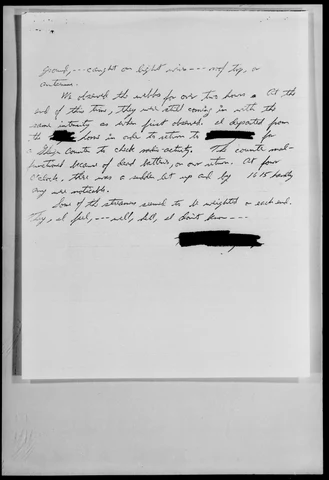 Ground, --- caught on light wires --- roof top, or
antenna.
We observed the webbs for over two hours. At the
end of this time, they were still coming in with the
same intensity as when first observed. I departed from
the home in order to return to for
a Geiger Counter to check radio activity. The counter mal-
functioned because of dead battery, on our return. At four
o'clock, there was a sudden let up and by 1615 hardly
any were noticeable.
Some of the streamers seemed to be weighted on each end.
They, I feel, --- well, hell, I don't know ---